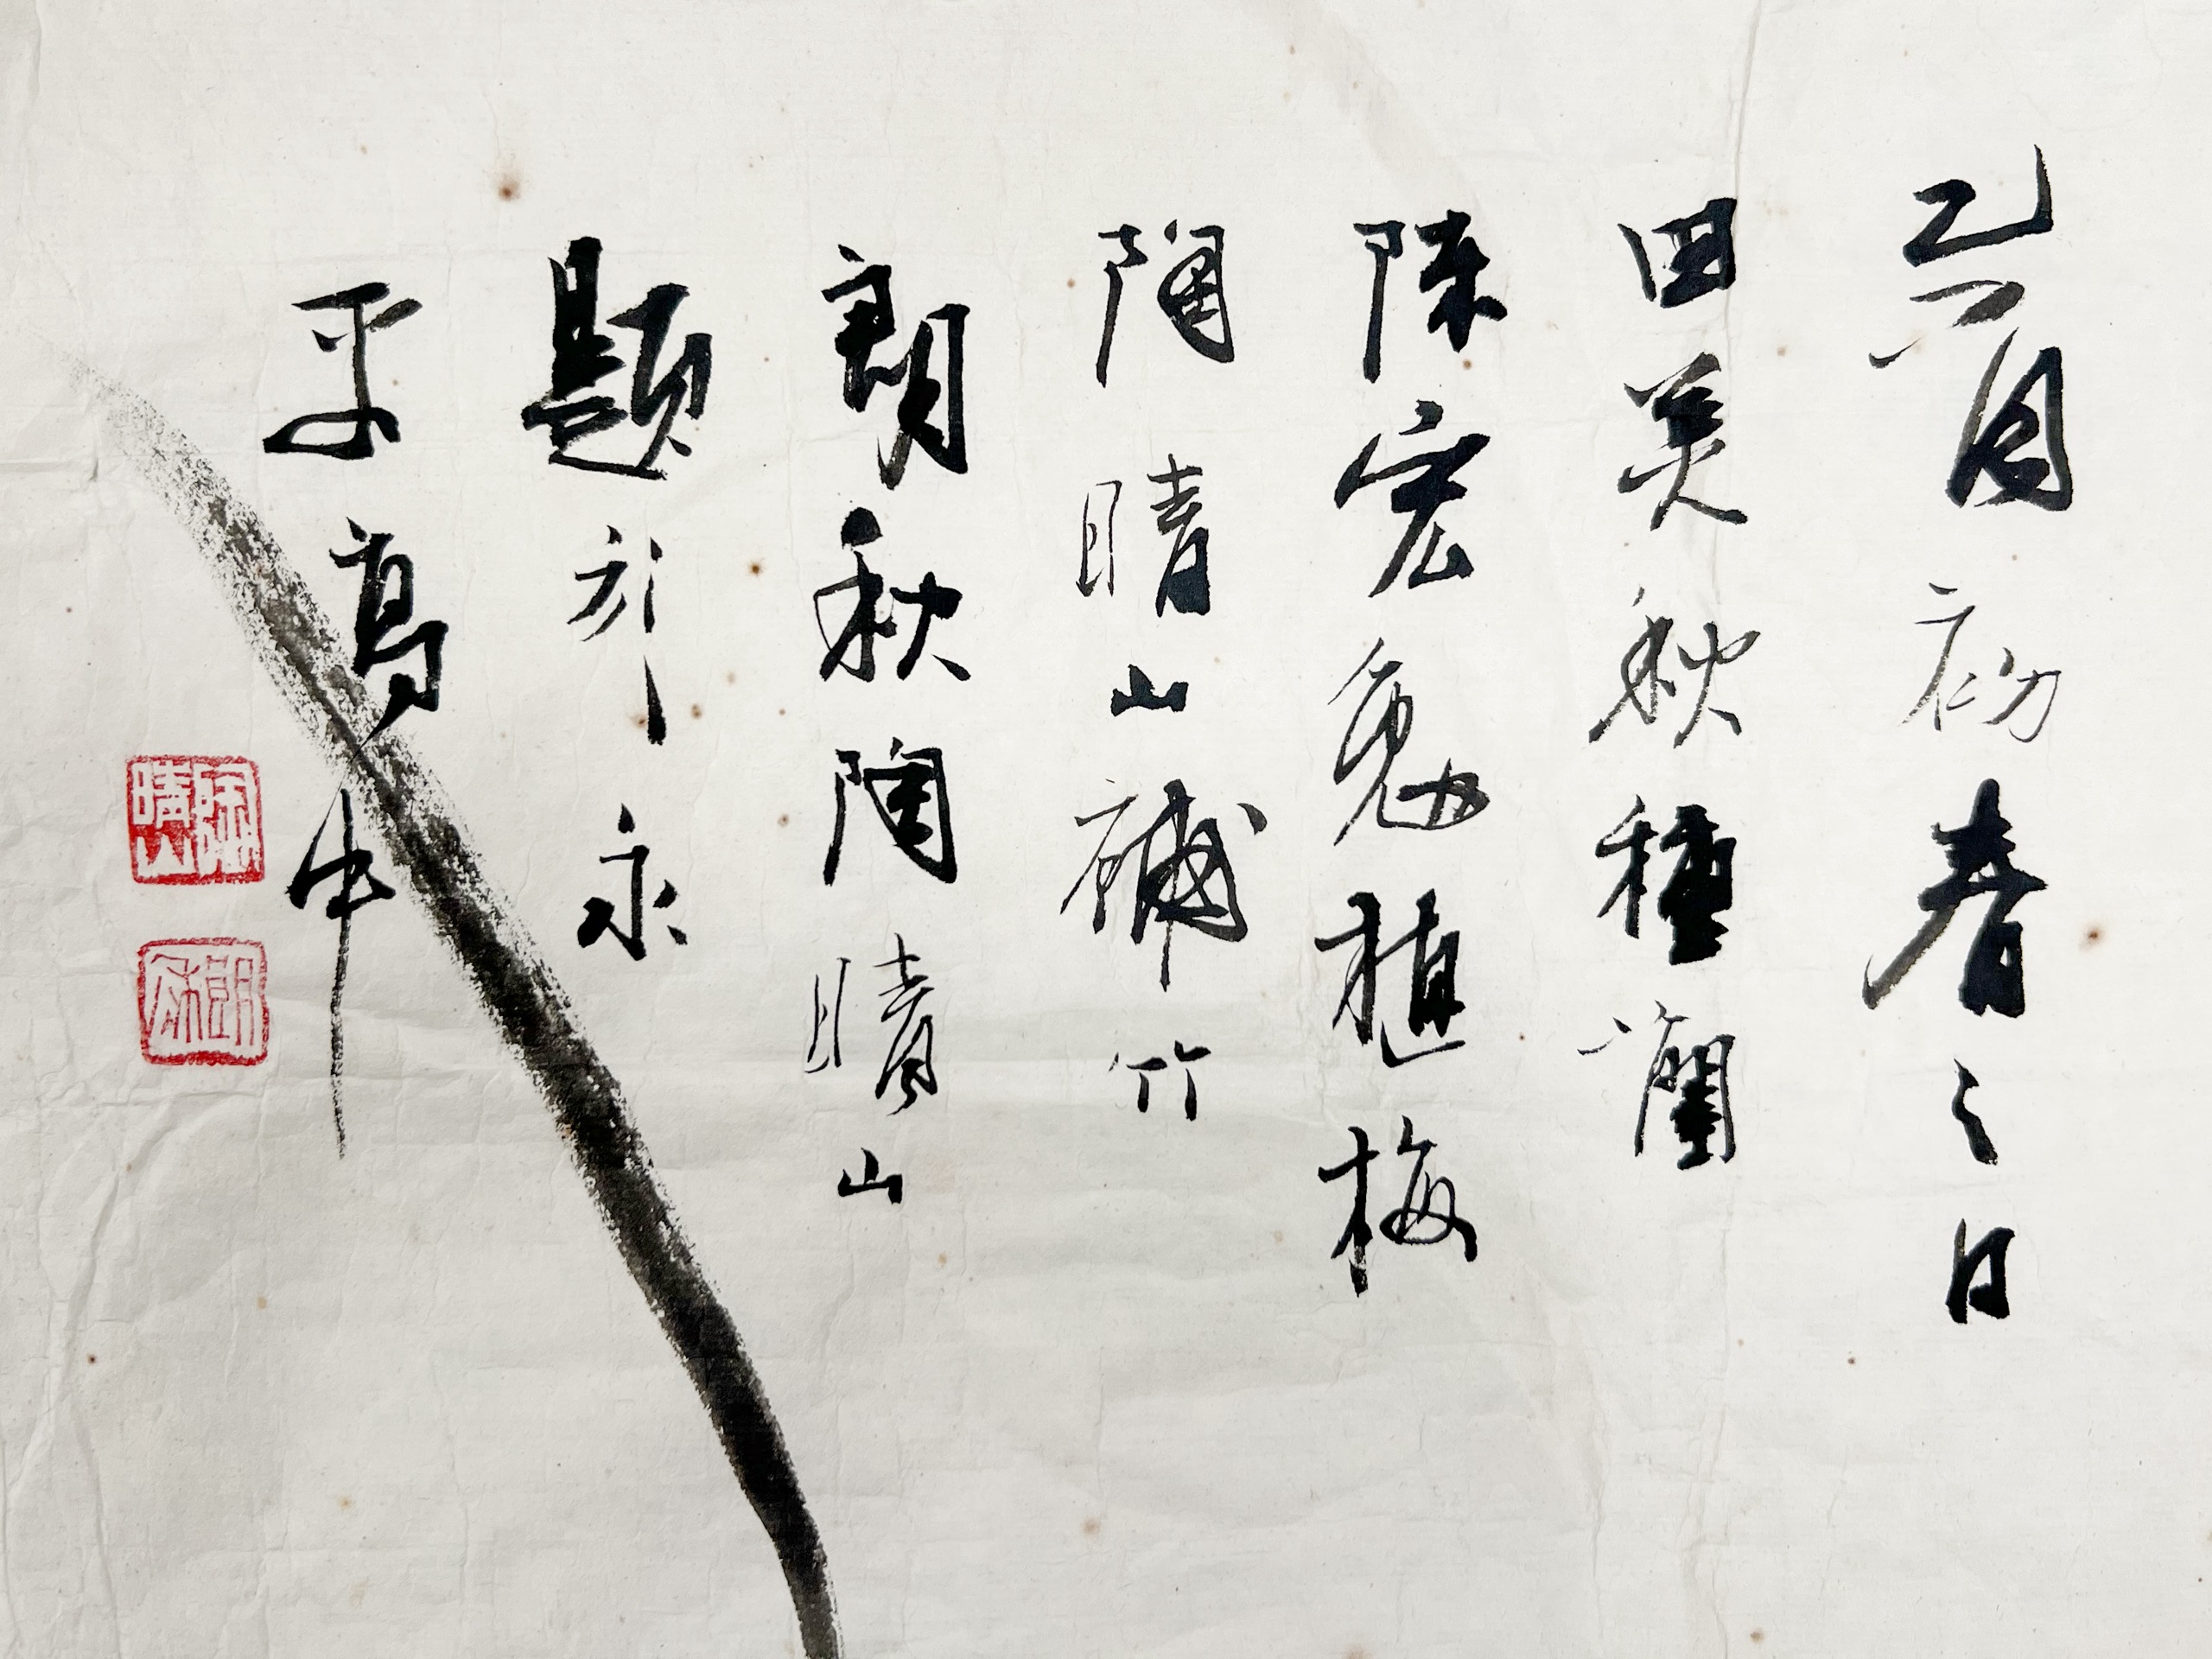 乙酉初春之日
田英秋種蘭
陳宏勉植梅
陶晴山補竹
朗秋陶晴山
題於永
平高中
陶晴山
朗秋